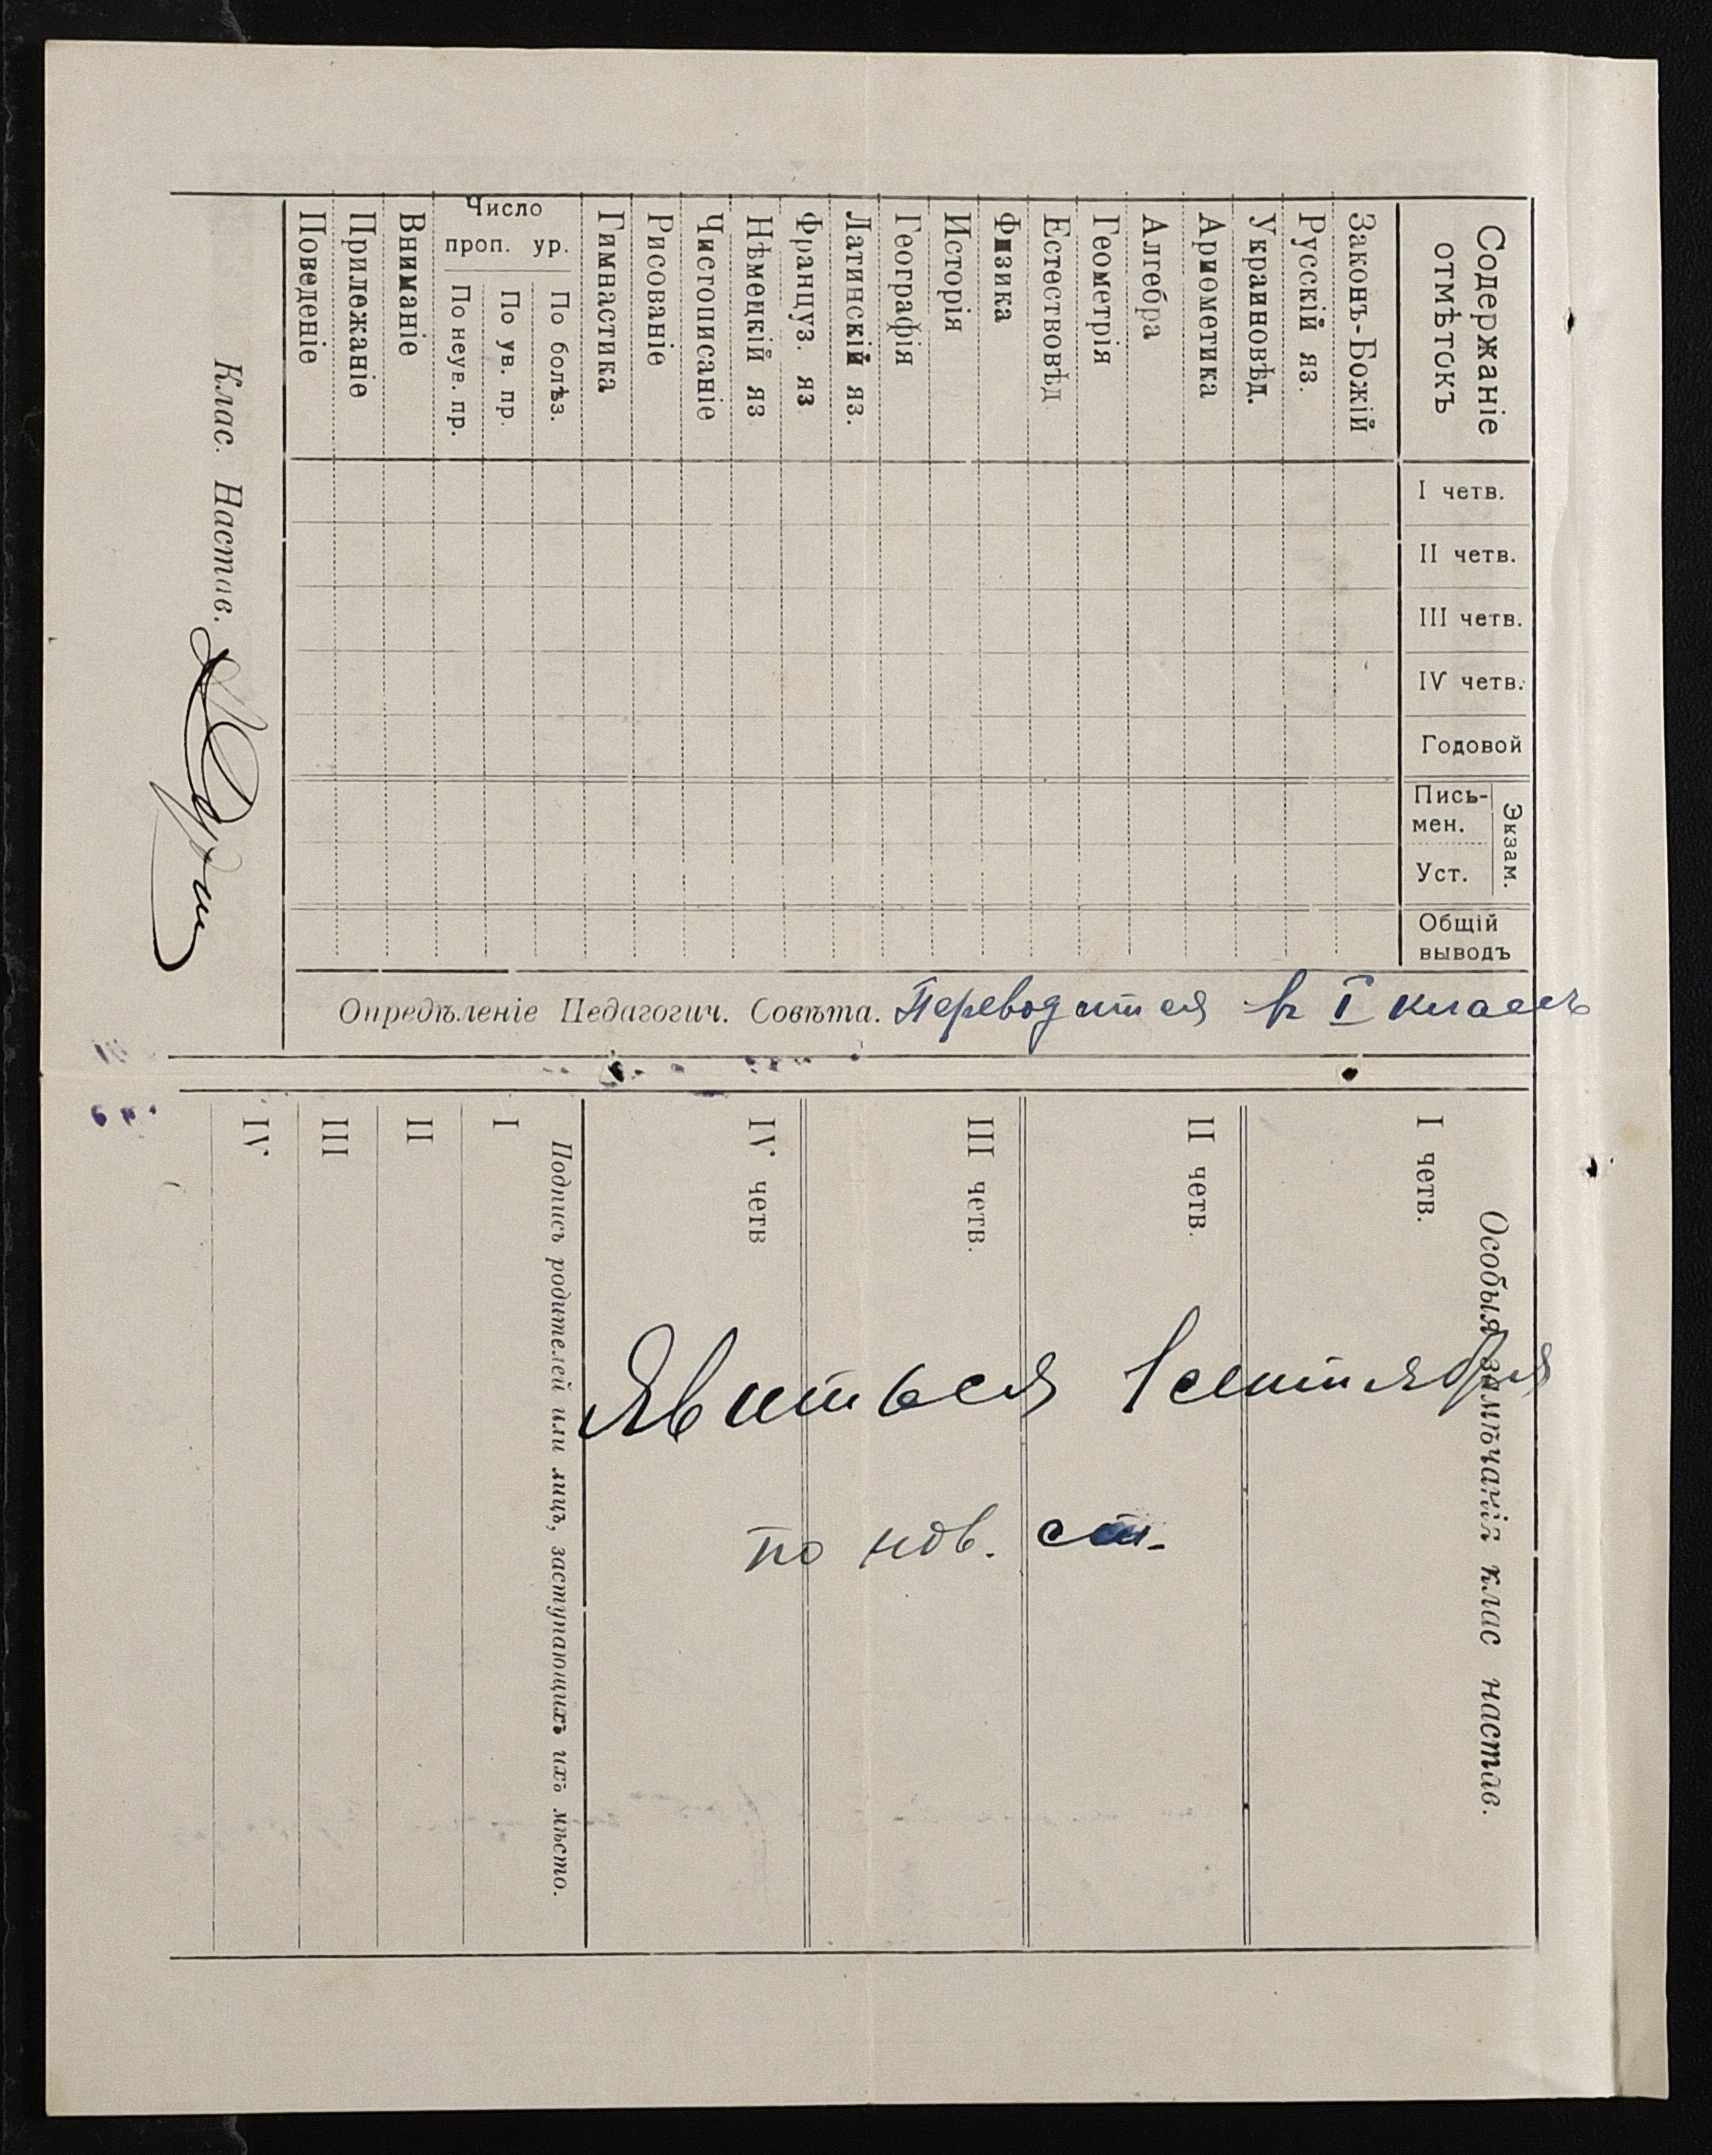 Содержаніе
отмѣтокъ
I четв.
II четв.
III четв.
IV четв.
Годовой
Экзам.
Пись-
мен.
Уст.
Общій
выводъ
Законъ-Божій
Русскій яз.
Украиновѣд.
Ариѳметика
Алгебра
Геометрія
Естествовѣд
Физика
Исторія
Географія
Латинскій яз.
Француз. яз
Нѣмецкій яз
Чистописаніе
Рисованіе
Гимнастика
Число
проп. ур.
По болѣз.
По ув. пр.
По неув. пр.
Вниманіе
Прилежаніе
Поведеніе
Клас. Настав.
Опредѣленіе Педагогич. Совѣта. Переводится в I классъ
Особыя замѣчанія клас настав.
I четв.
II четв.
III четв.
IV четв
Явиться 1 сентября
по нов. ст.
Подпись родителей или лицъ, заступающихъ ихъ мѣсто.
I
II
III
IV